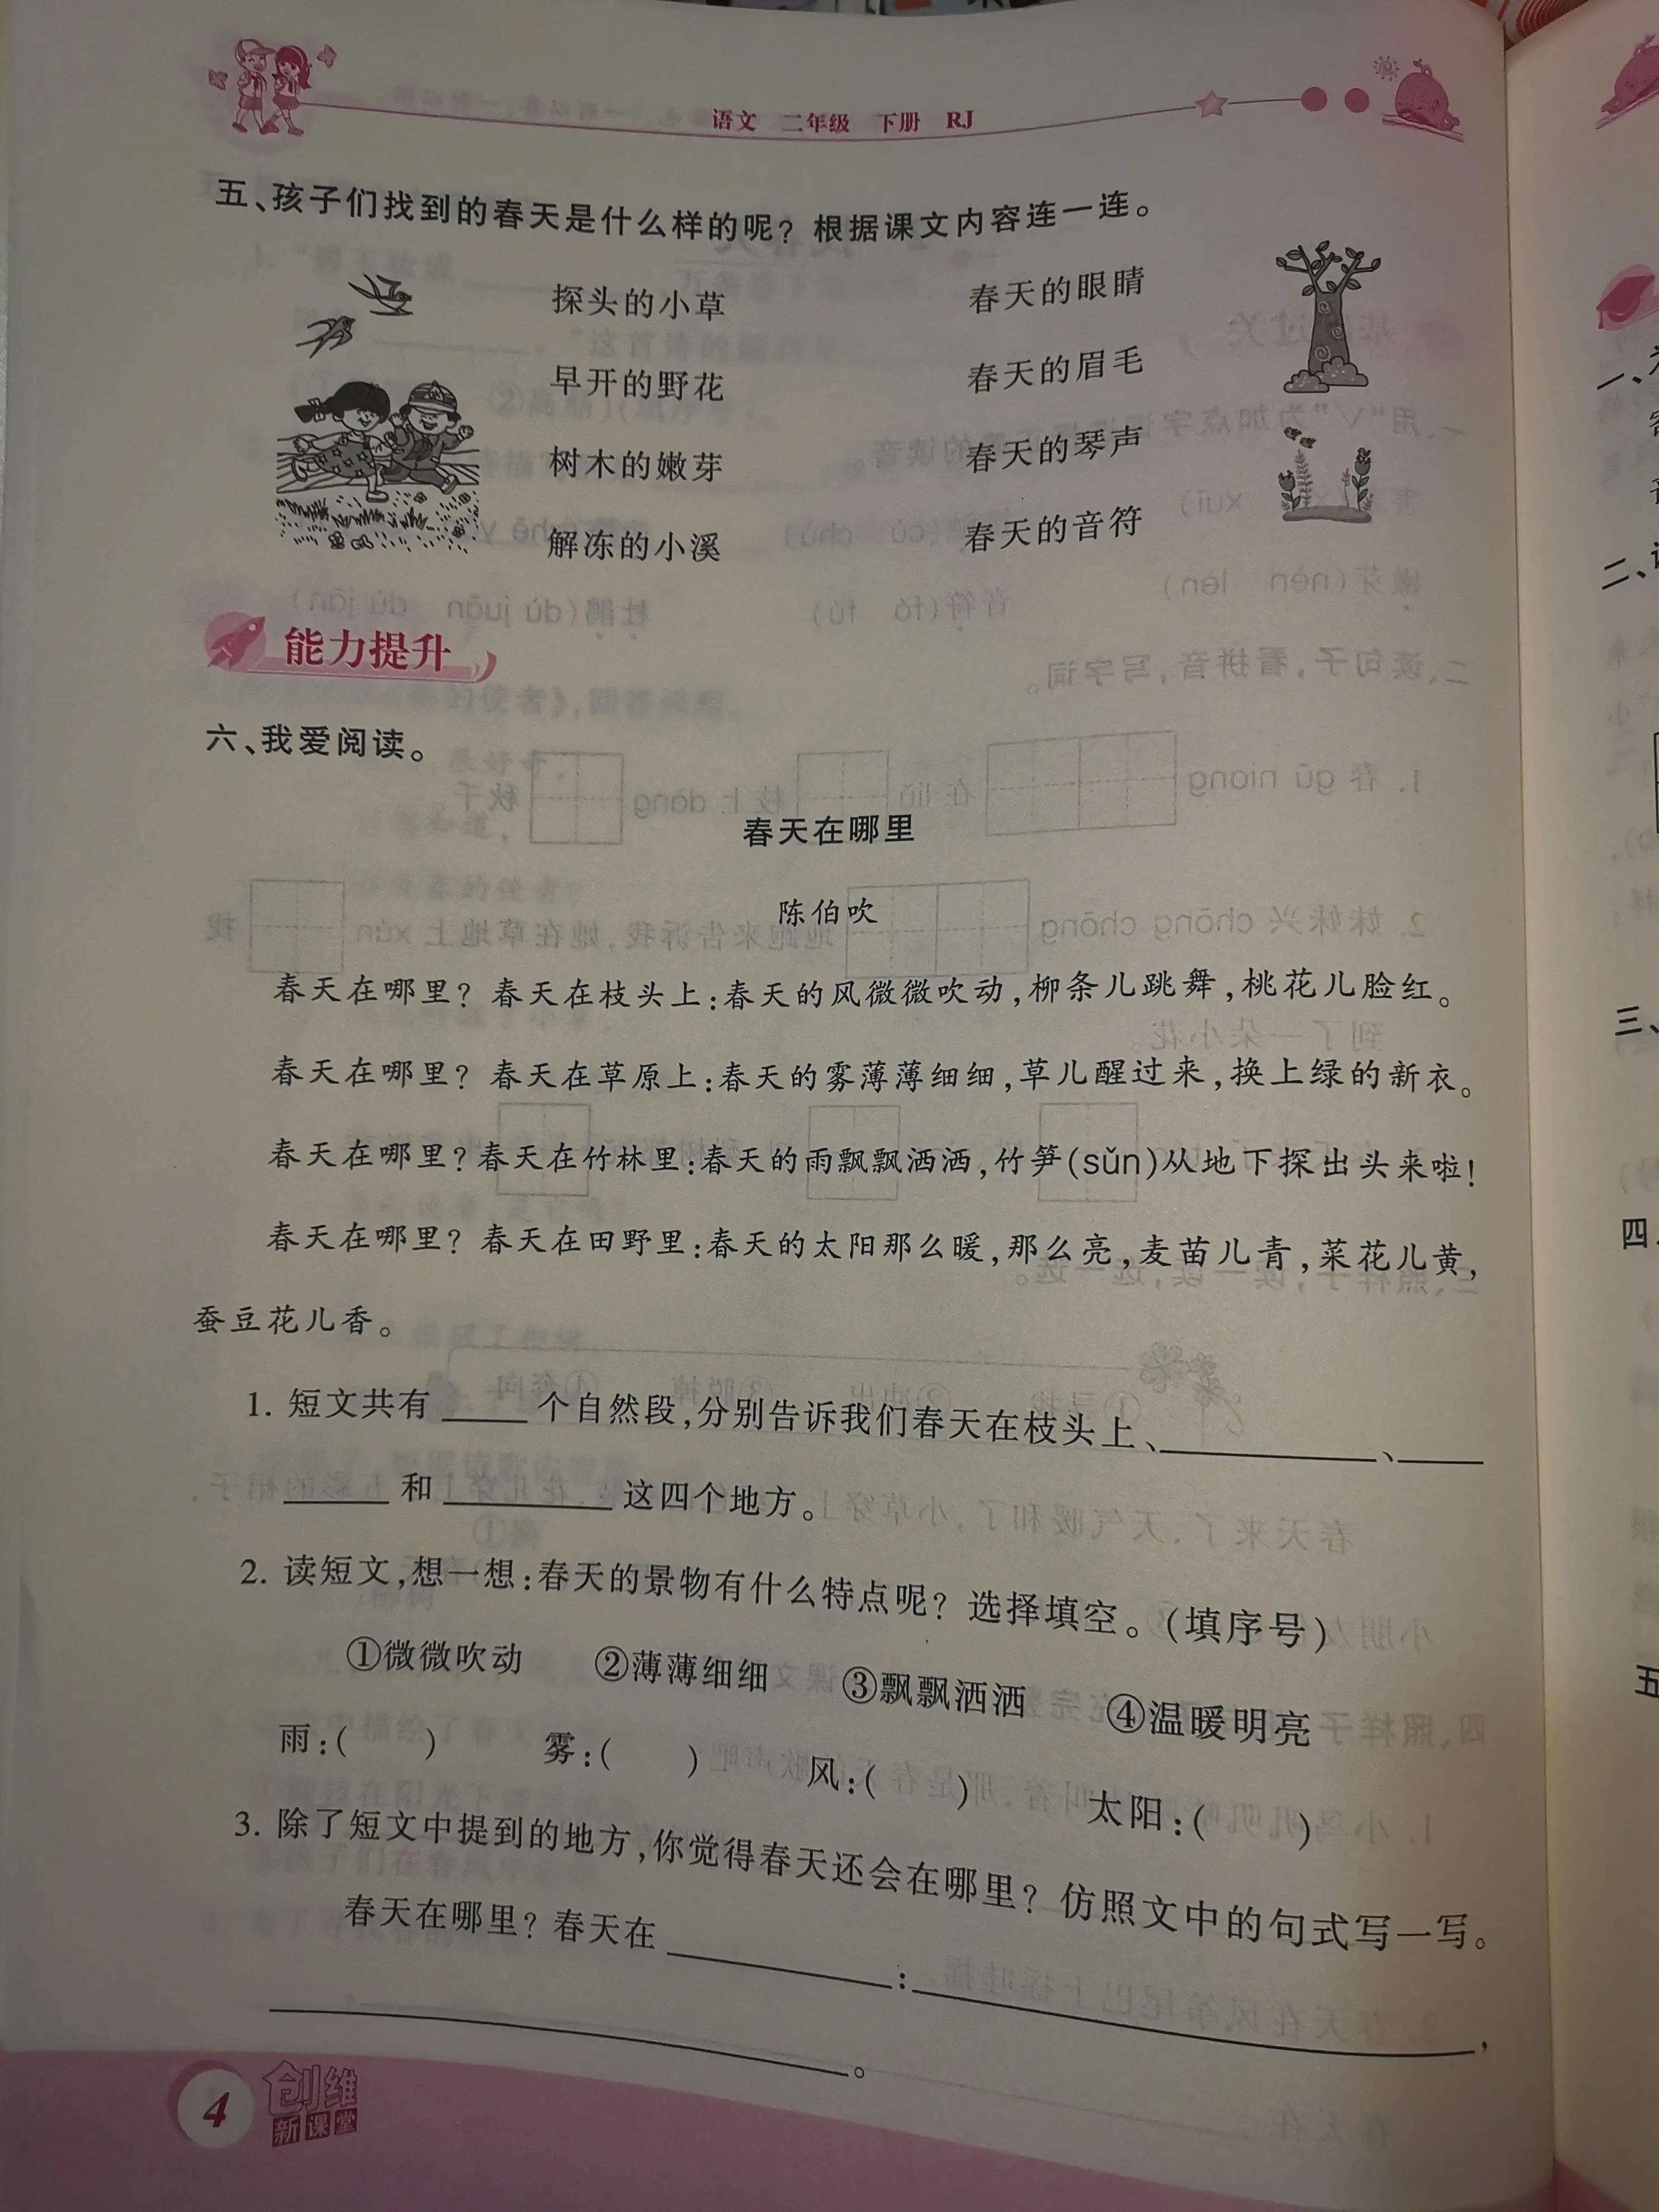 语文 二年级 下册 RJ
五、孩子们找到的春天是什么样的呢？根据课文内容连一连。
探头的小草 春天的眼睛
早开的野花 春天的眉毛
树木的嫩芽 春天的琴声
解冻的小溪 春天的音符
能力提升
六、我爱阅读。
春天在哪里
陈伯吹
春天在哪里？春天在枝头上：春天的风微微吹动，柳条儿跳舞，桃花儿脸红。
春天在哪里？春天在草原上：春天的雾薄薄细细，草儿醒过来，换上绿的新衣。
春天在哪里？春天在竹林里：春天的雨飘飘洒洒，竹笋(sǔn)从地下探出头来啦！
春天在哪里？春天在田野里：春天的太阳那么暖，那么亮，麦苗儿青，菜花儿黄，
蚕豆花儿香。
1. 短文共有____个自然段，分别告诉我们春天在枝头上、__________、____
_____和________这四个地方。
2. 读短文，想一想：春天的景物有什么特点呢？选择填空。（填序号）
①微微吹动 ②薄薄细细 ③飘飘洒洒 ④温暖明亮
雨：（ ） 雾：（ ） 风：（ ） 太阳：（ ）
3. 除了短文中提到的地方，你觉得春天还会在哪里？仿照文中的句式写一写。
春天在哪里？春天在__________：__________________________，
__________________________。
4
创维
新课堂